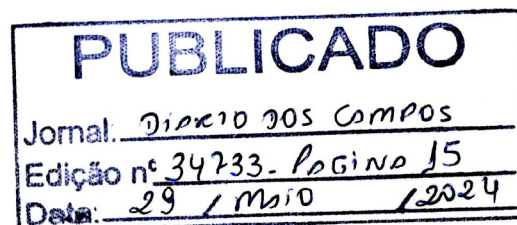 PUBLICADO
Jornal: DIARIO DOS CAMPOS
Edição nº 34733 - PAGINA 15
Data: 29 / MAIO / 2024